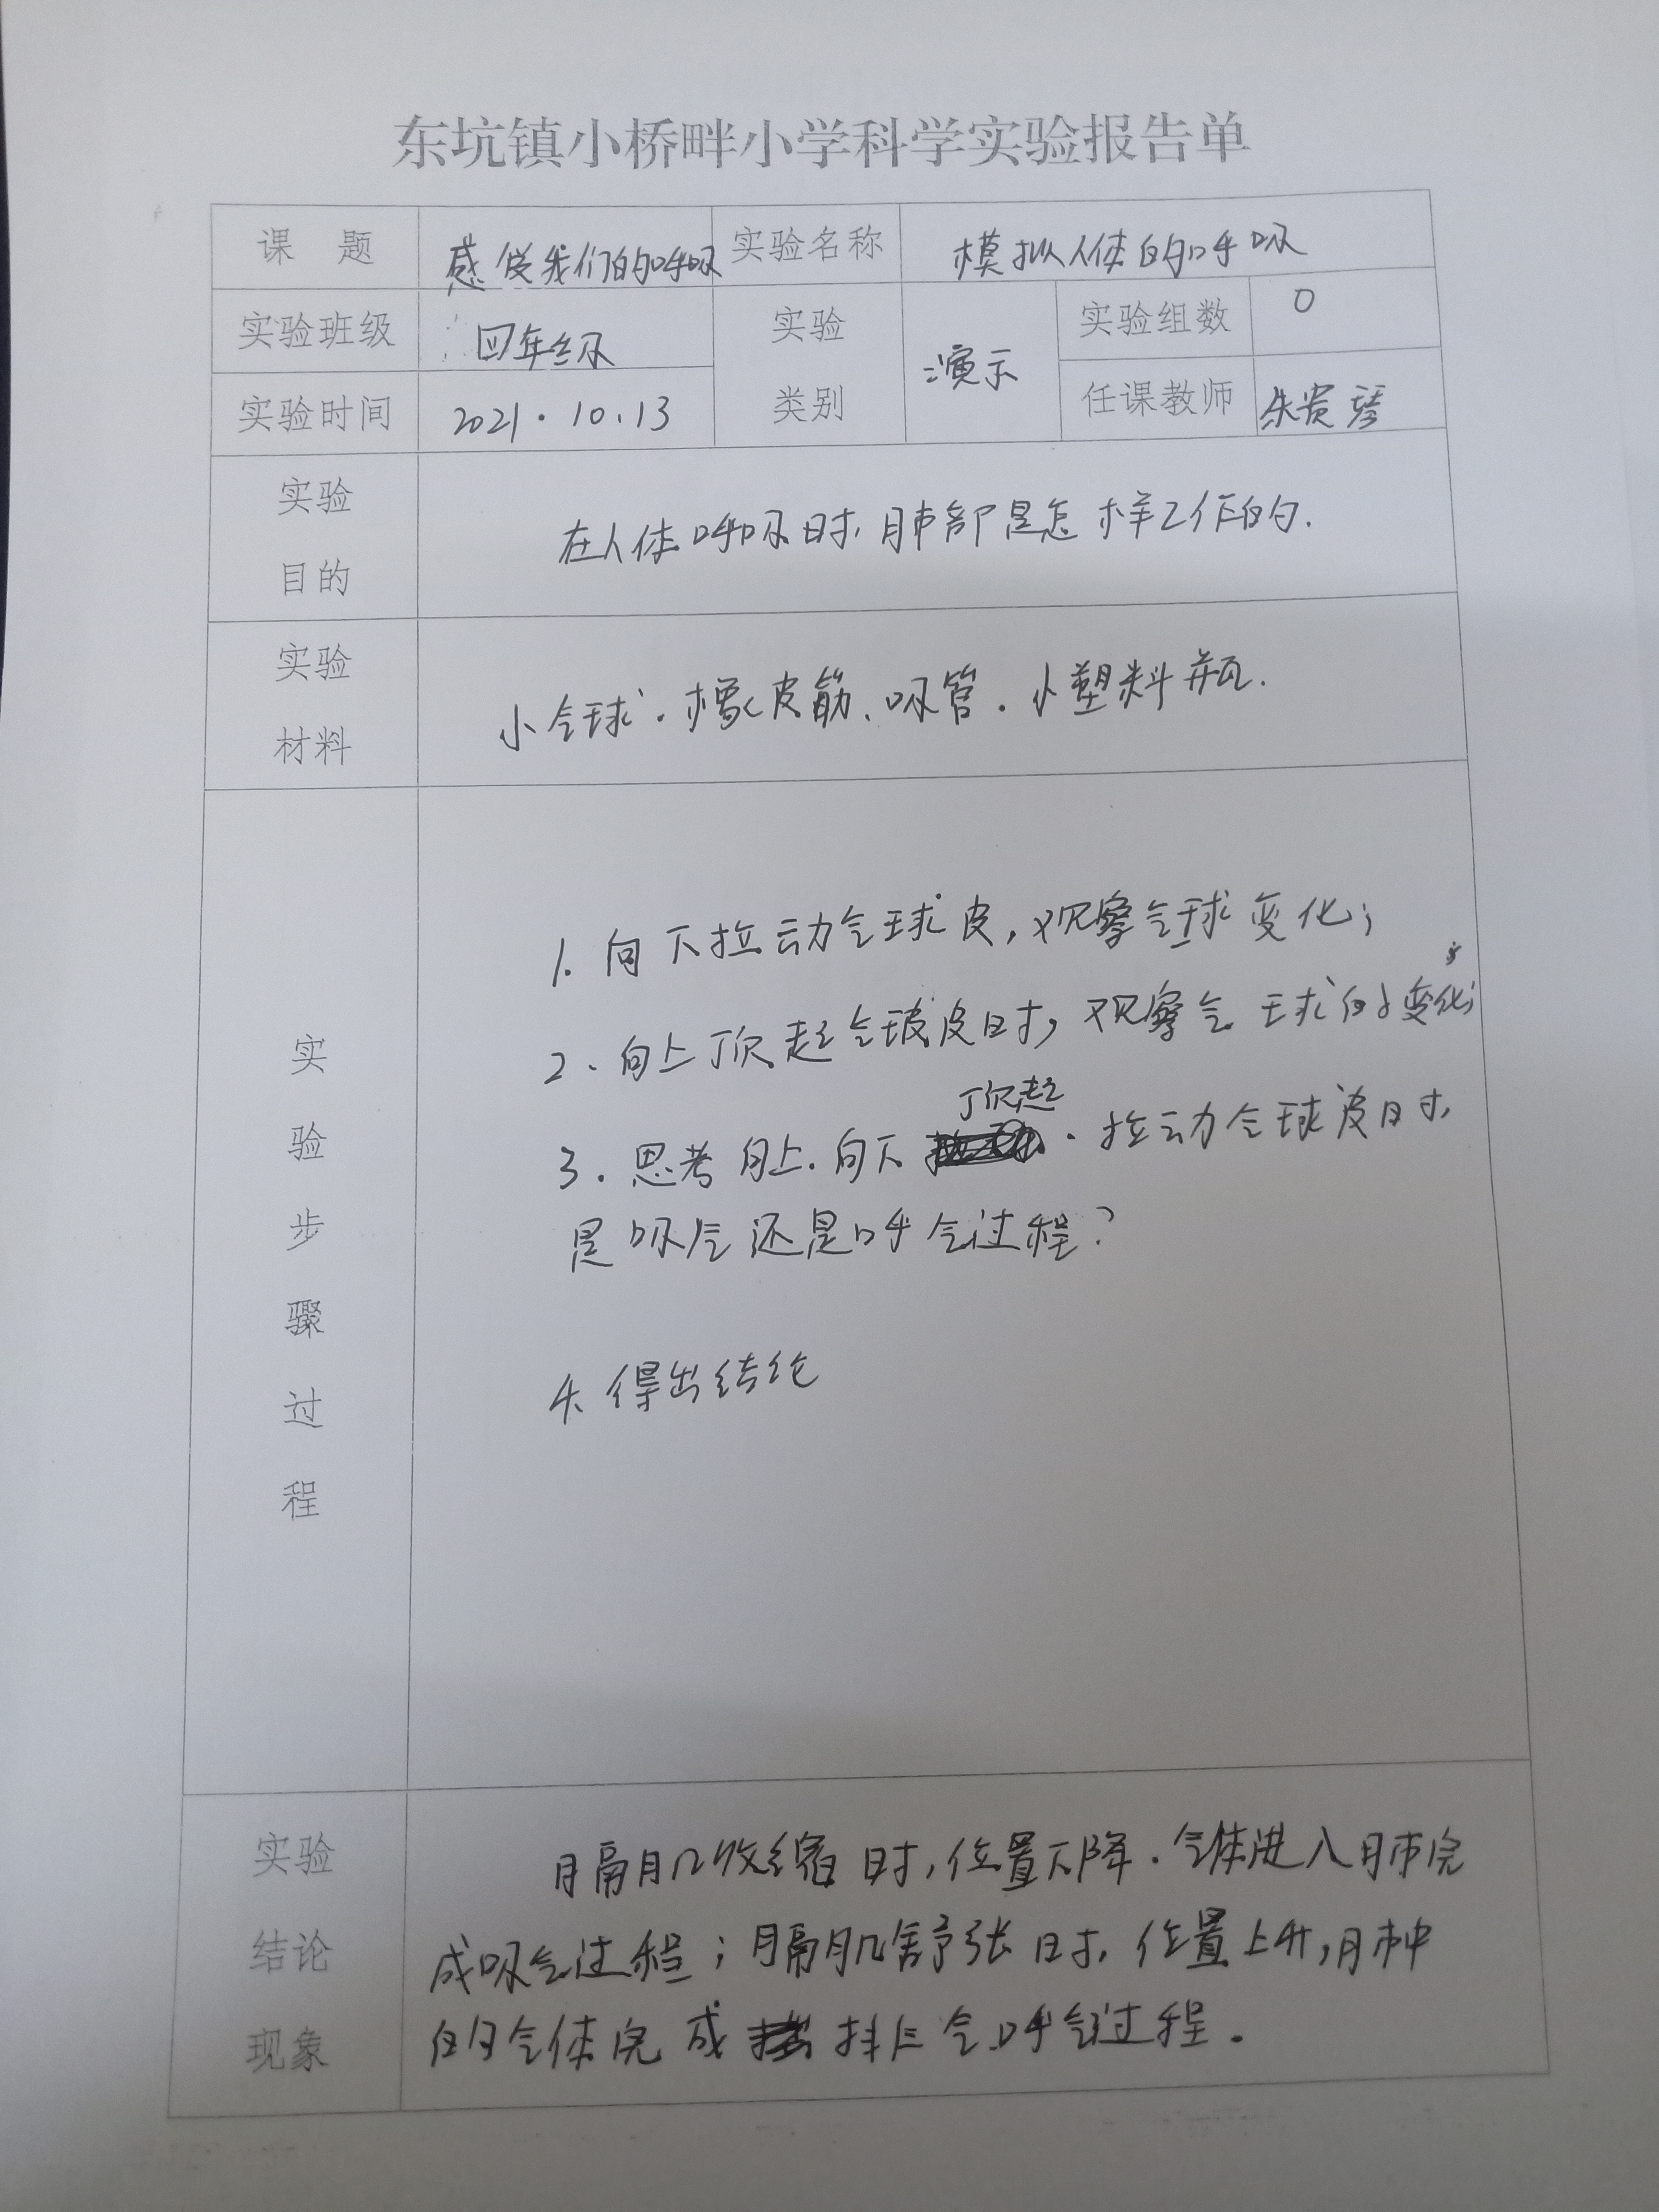 东坑镇小桥畔小学科学实验报告单
课 题 感受我们的呼吸 实验名称 模拟人体的呼吸
实验班级 四年级 实验类别 演示 实验组数 0
实验时间 2021.10.13 任课教师 朱贵琴
实验目的 在人体呼吸时,肺部是怎样工作的.
实验材料 小气球.橡皮筋、吸管.小塑料瓶.
实验步骤过程
1.向下拉动气球皮,观察气球变化;
2、向上顶起气球皮时,观察气球的变化;
3.思考向上.向下顶起.拉动气球皮时,
是吸气还是呼气过程?
4、得出结论
实验结论现象
膈肌收缩时,位置下降.气体进入肺完
成吸气过程;膈肌舒张时,位置上升,肺中
的气体完成排气呼气过程.